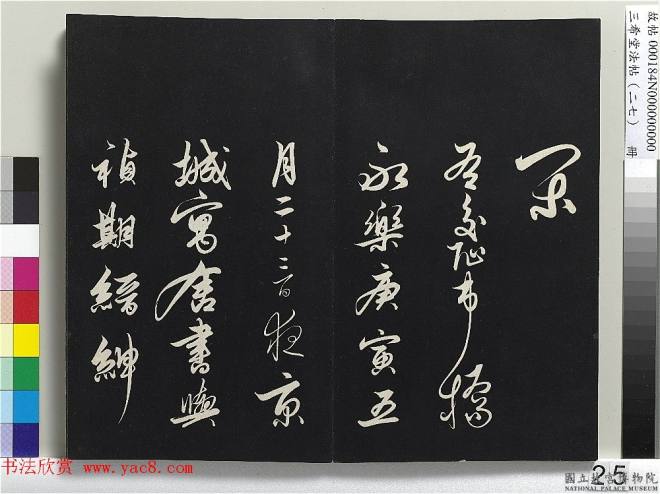 永樂庚寅五
月二十三日夜京
城寓舍書與
禎期縉紳
故帖 000184N000000000
三希堂法帖（二七） 冊
25
书法欣赏 www.yac8.com
國立故宮博物院
NATIONAL PALACE MUSEUM